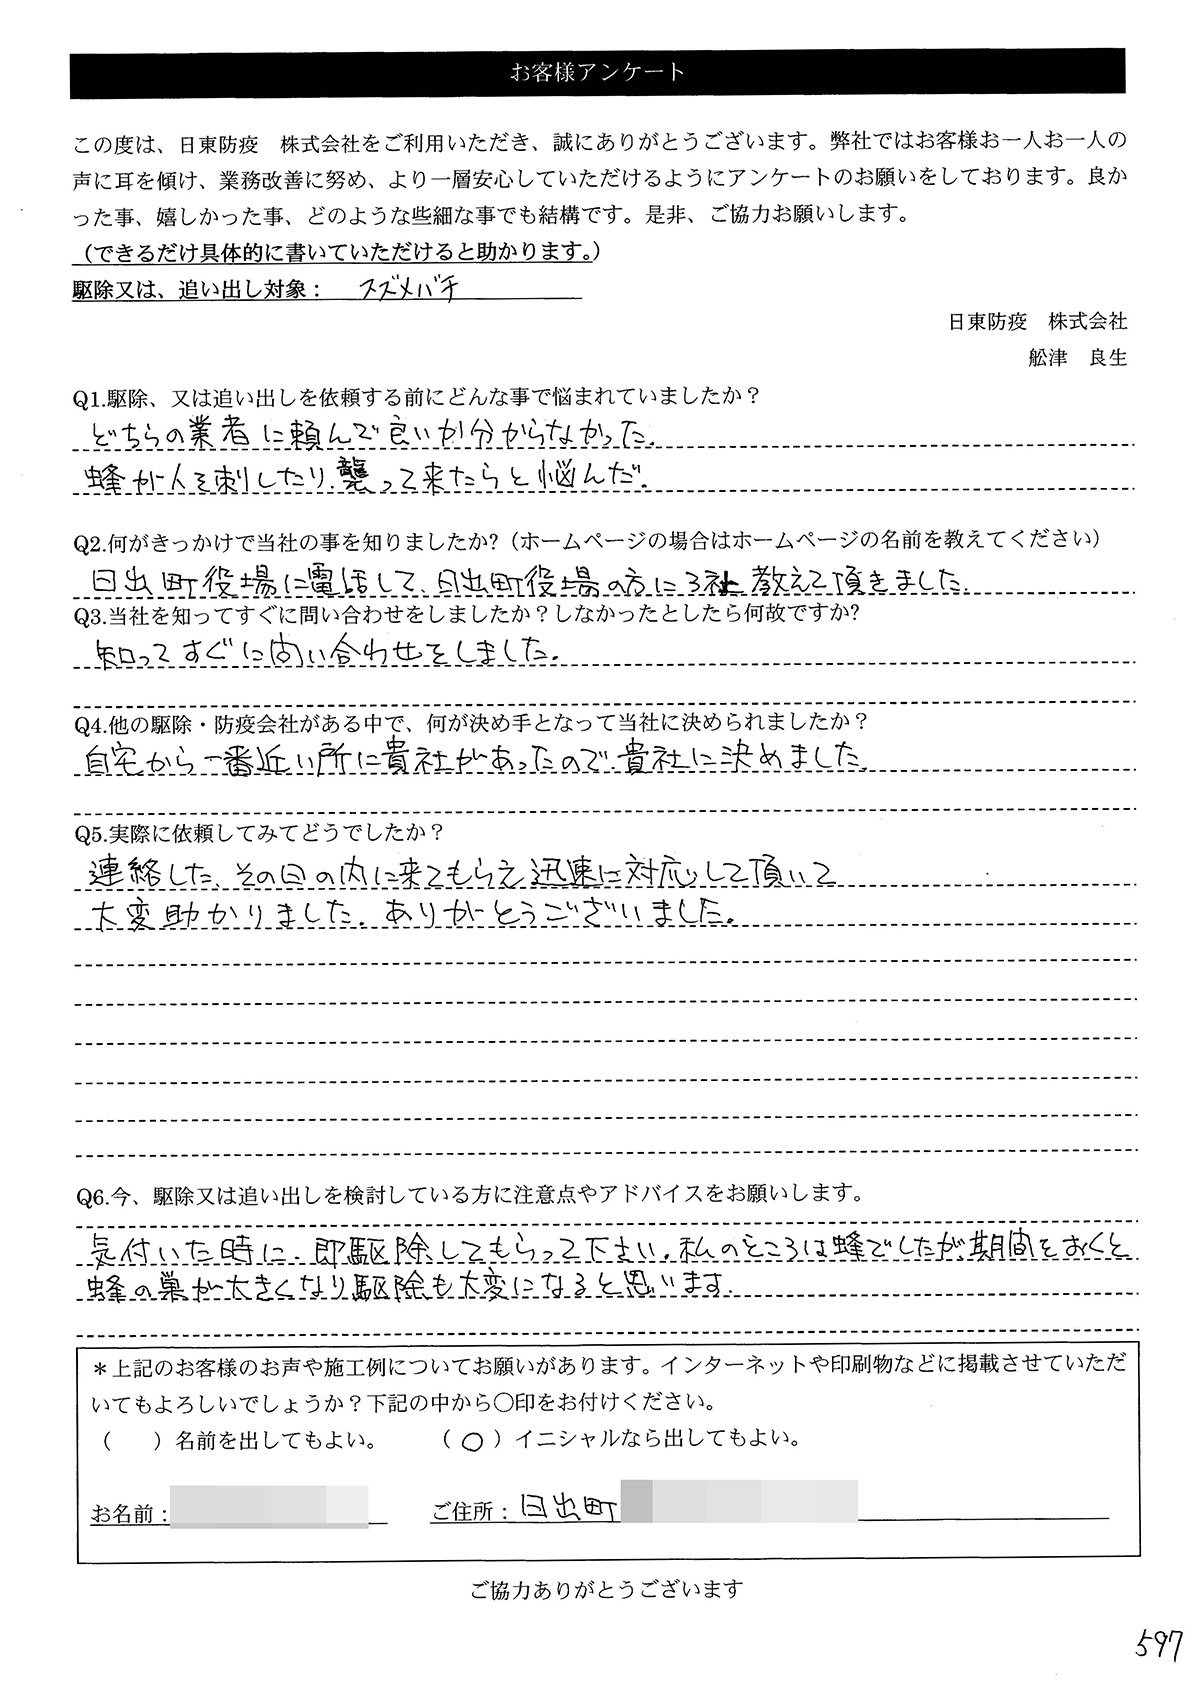 お客様アンケート
この度は、日東防疫　株式会社をご利用いただき、誠にありがとうございます。弊社ではお客様お一人お一人の
声に耳を傾け、業務改善に努め、より一層安心していただけるようにアンケートのお願いをしております。良か
った事、嬉しかった事、どのような些細な事でも結構です。是非、ご協力お願いします。
（できるだけ具体的に書いていただけると助かります。）
駆除又は、追い出し対象：　スズメバチ
日東防疫　株式会社
舩津　良生
Q1.駆除、又は追い出しを依頼する前にどんな事で悩まれていましたか？
どちらの業者に頼んで良いか分からなかった。
蜂が人を刺したり、襲って来たらと悩んだ。
Q2.何がきっかけで当社の事を知りましたか?（ホームページの場合はホームページの名前を教えてください）
日出町役場に電話して、日出町役場の方に3社教えて頂きました。
Q3.当社を知ってすぐに問い合わせをしましたか？しなかったとしたら何故ですか?
知ってすぐに問い合わせをしました。
Q4.他の駆除・防疫会社がある中で、何が決め手となって当社に決められましたか？
自宅から一番近い所に貴社があったので、貴社に決めました。
Q5.実際に依頼してみてどうでしたか？
連絡した、その日の内に来てもらえ迅速に対応して頂いて
大変助かりました。ありがとうございました。
Q6.今、駆除又は追い出しを検討している方に注意点やアドバイスをお願いします。
気付いた時に、即駆除してもらって下さい。私のところは蜂でしたが、期間をおくと
蜂の巣が大きくなり駆除も大変になると思います。
＊上記のお客様のお声や施工例についてお願いがあります。インターネットや印刷物などに掲載させていただ
いてもよろしいでしょうか？下記の中から○印をお付けください。
（　　）名前を出してもよい。　　（ ○ ）イニシャルなら出してもよい。
お名前：　　ご住所：日出町
ご協力ありがとうございます
597